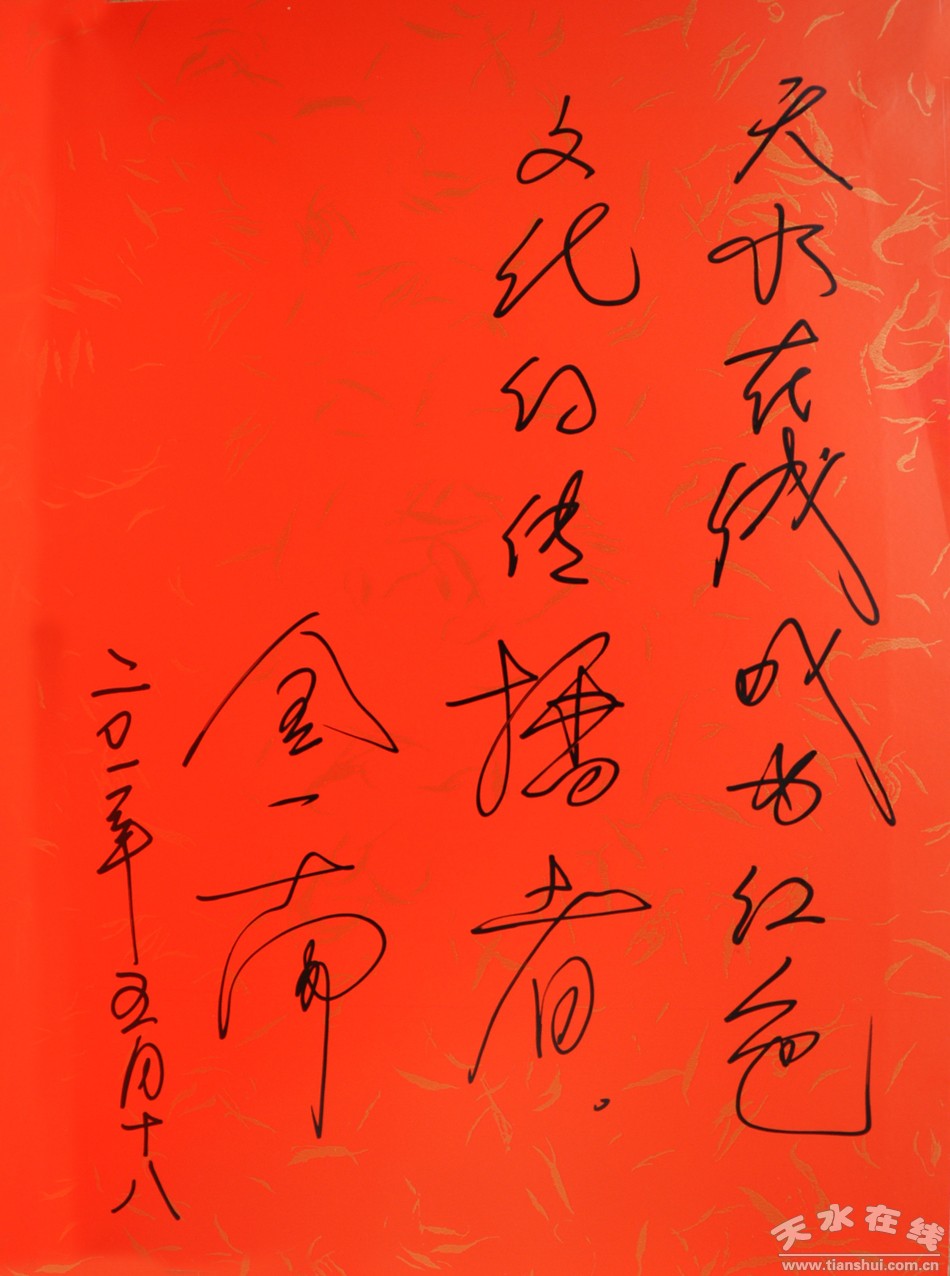 天水在线成为红色
文化的传播者。
金一南
二〇一二年五月十八
天水在线
www.tianshui.com.cn